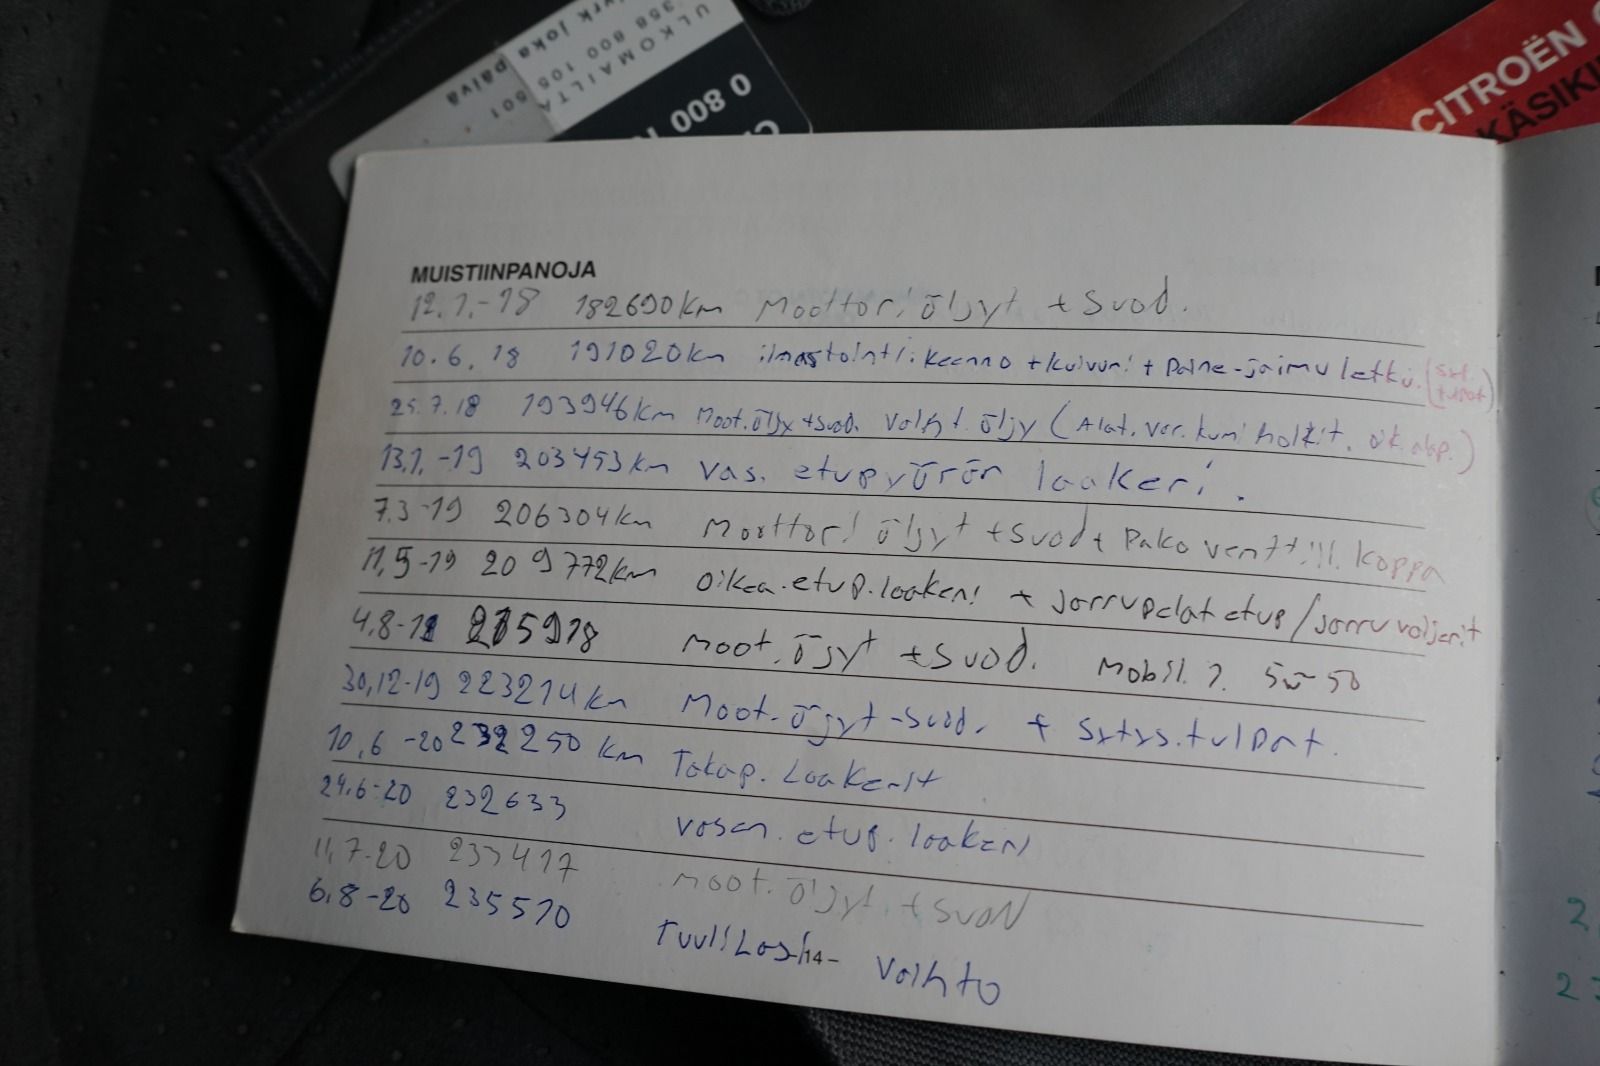 ULKOMAILTA
358 800 105 501
0 800
CITROËN
KÄSIKI
MUISTIINPANOJA
12.1.-18 182690km Moottori öljyt + Suod.
10.6.18 191020km ilmastointi.kenno + kuivuri + Paine-ja imu letku.
25.7.18 193946km Moot.öljy + Suod. Vaiht.öljy (Alat.var.kumi holkit. oik.alap.)
13.1.-19 203453km Vas. etupyörän laakeri.
7.3-19 206304km Moottori öljyt + Suod + Pako venttiil. koppa
11,5-19 209772km Oikea.etup.laakeri + jarrupalat etup/jarru
4.8-19 215918 Moot.öjyt + Suod. Mobil.1. 5w-50
30,12-19 223214km Moot.öjyt-Suod. + Sytys.tulpat.
10,6-20 232250 km Takap. Laakerit
24.6-20 232633 vasen.etup.laakeri
11,7-20 233417 Moot.öljyt + Suod
6,8-20 235510 Tuulilasi Vaihto
-14-